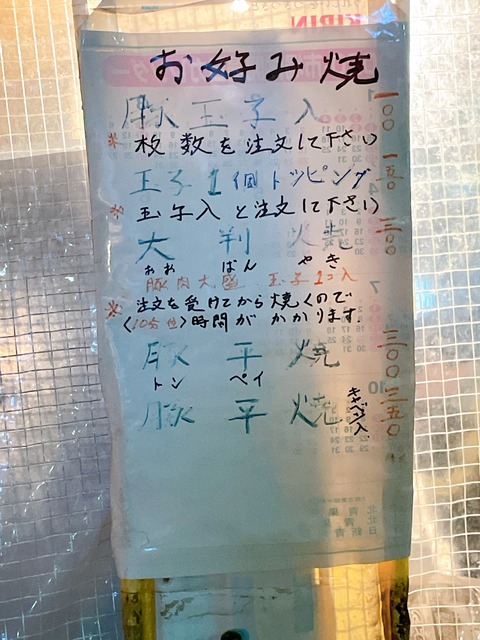 お好み焼
豚玉子入 一〇〇
※ 枚数を注文して下さい
玉子1個トッピング 一五〇
※ 玉子入と注文して下さい
大判焼 三〇〇
おお ばん やき
豚肉大盛 玉子1コ入
※ 注文を受けてから焼くので
(10分位)時間がかかります。
豚平焼 三〇〇
トン ペイ
豚平焼 キャベツ入 三五〇
KIRIN